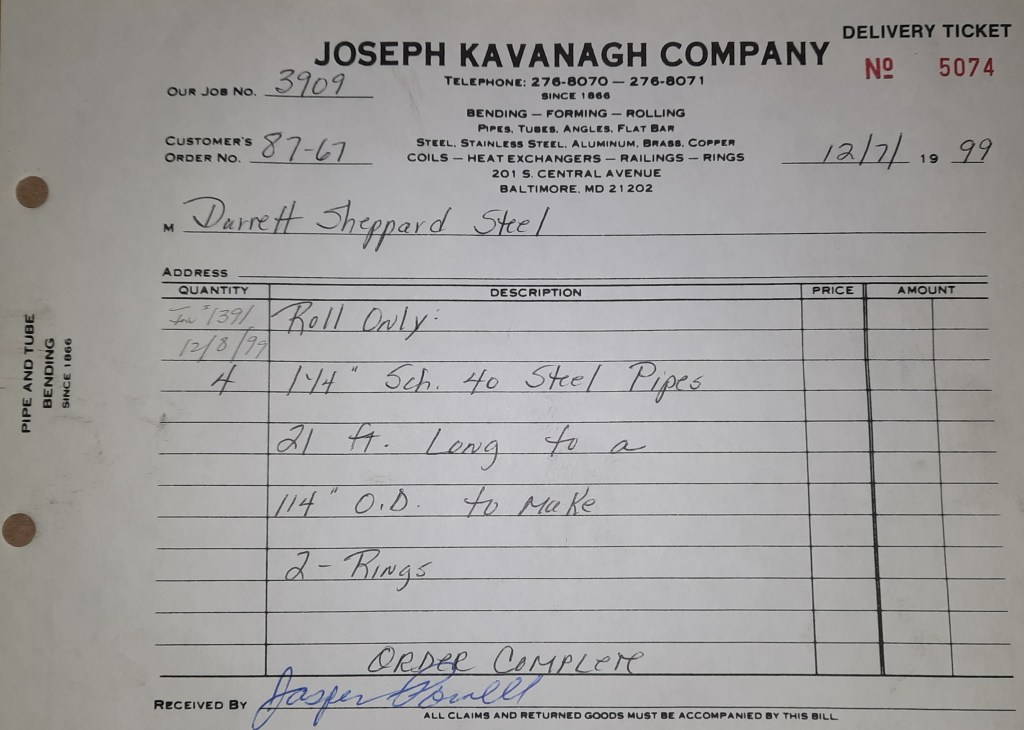 DELIVERY TICKET
JOSEPH KAVANAGH COMPANY
Nº 5074
OUR JOB NO. 3909
TELEPHONE: 276-8070 — 276-8071
SINCE 1866
BENDING — FORMING — ROLLING
PIPES, TUBES, ANGLES, FLAT BAR
CUSTOMER'S ORDER NO. 87-67
STEEL, STAINLESS STEEL, ALUMINUM, BRASS, COPPER
COILS — HEAT EXCHANGERS — RAILINGS — RINGS
12/7/ 19 99
201 S. CENTRAL AVENUE
BALTIMORE, MD 21202
M Durrett Sheppard Steel
ADDRESS
QUANTITY DESCRIPTION PRICE AMOUNT
Inv # 1391 Roll Only:
12/8/99
4 1 1/4" Sch. 40 Steel Pipes
21 ft. Long to a
114" O.D. to Make
2 - Rings
ORDER COMPLETE
RECEIVED BY Jasper Powell
ALL CLAIMS AND RETURNED GOODS MUST BE ACCOMPANIED BY THIS BILL
PIPE AND TUBE
BENDING
SINCE 1866